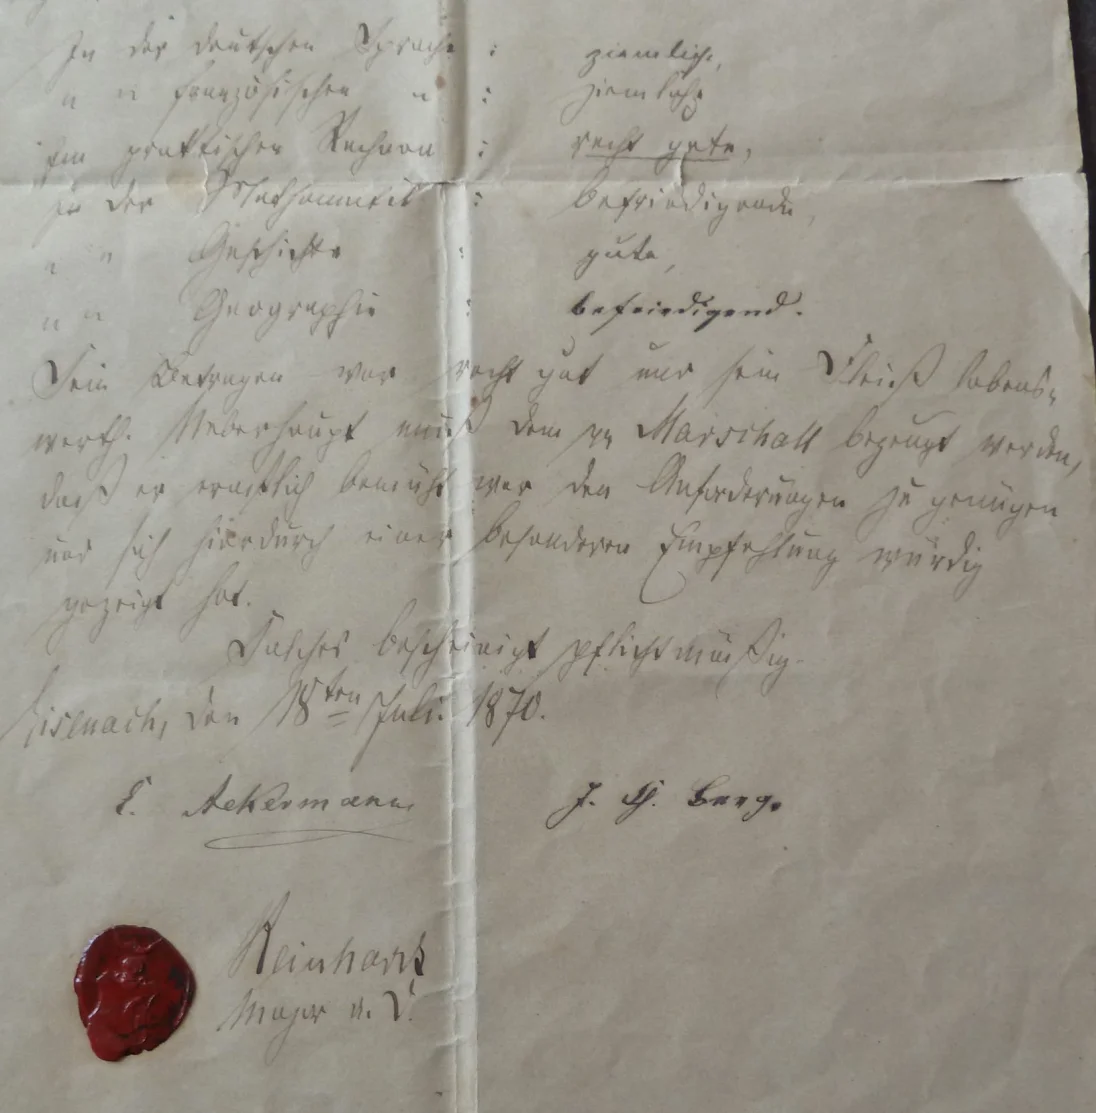 In der deutschen Sprache : ziemliche,
" " französischen " : ziemliche
Im praktischen Rechnen : recht gute,
In der Mathematik : befriedigende,
" " Geschichte : gute,
" " Geographie : befriedigend.
Sein Betragen war recht gut und sein Fleiß lobens-
werth. Ueberhaupt muß dem Marschall bezeugt werden,
daß er ernstlich bemüht war den Anforderungen zu genügen
und sich hierdurch einer besonderen Empfehlung würdig
gezeigt hat.
Solches bescheinigt pflichtmäßig.
Eisenach, den 18ten Juli 1870.
E. Ackermann J. Berg.
Major a. D.